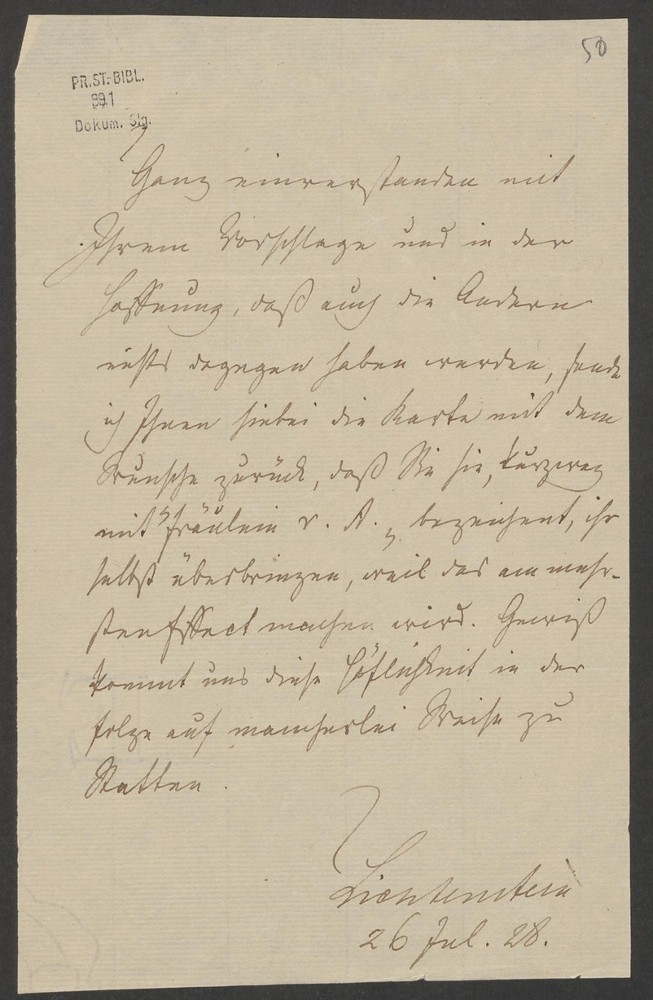 50
PR.ST.-BIBL.
Dokum. Slg.
Ganz einverstanden mit
Ihrem Vorschlage und in der
Hoffnung, daß auch die Andern
nichts dagegen haben werden, sende
ich Ihnen hiebei die Karte mit dem
Wunsche zurück, daß Sie sie, kurzweg
mit "Fräulein v. A.„ bezeichnet, ihr
selbst überbringen, weil das am mehr-
sten Effect machen wird. Gewiß
kommt uns diese Höflichkeit in der
Folge auf mancherlei Weise zu
Statten.
Lichtenstein
26 Jul. 28.